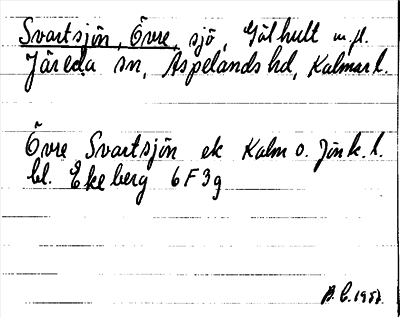 Svartsjön, Övre, sjö, Gölhult m. fl.
Järeda sn, Aspelands hd, Kalmar l.
Övre Svartsjön ek Kalm o. Jönk. l.
bl. Ekeberg 6F3g